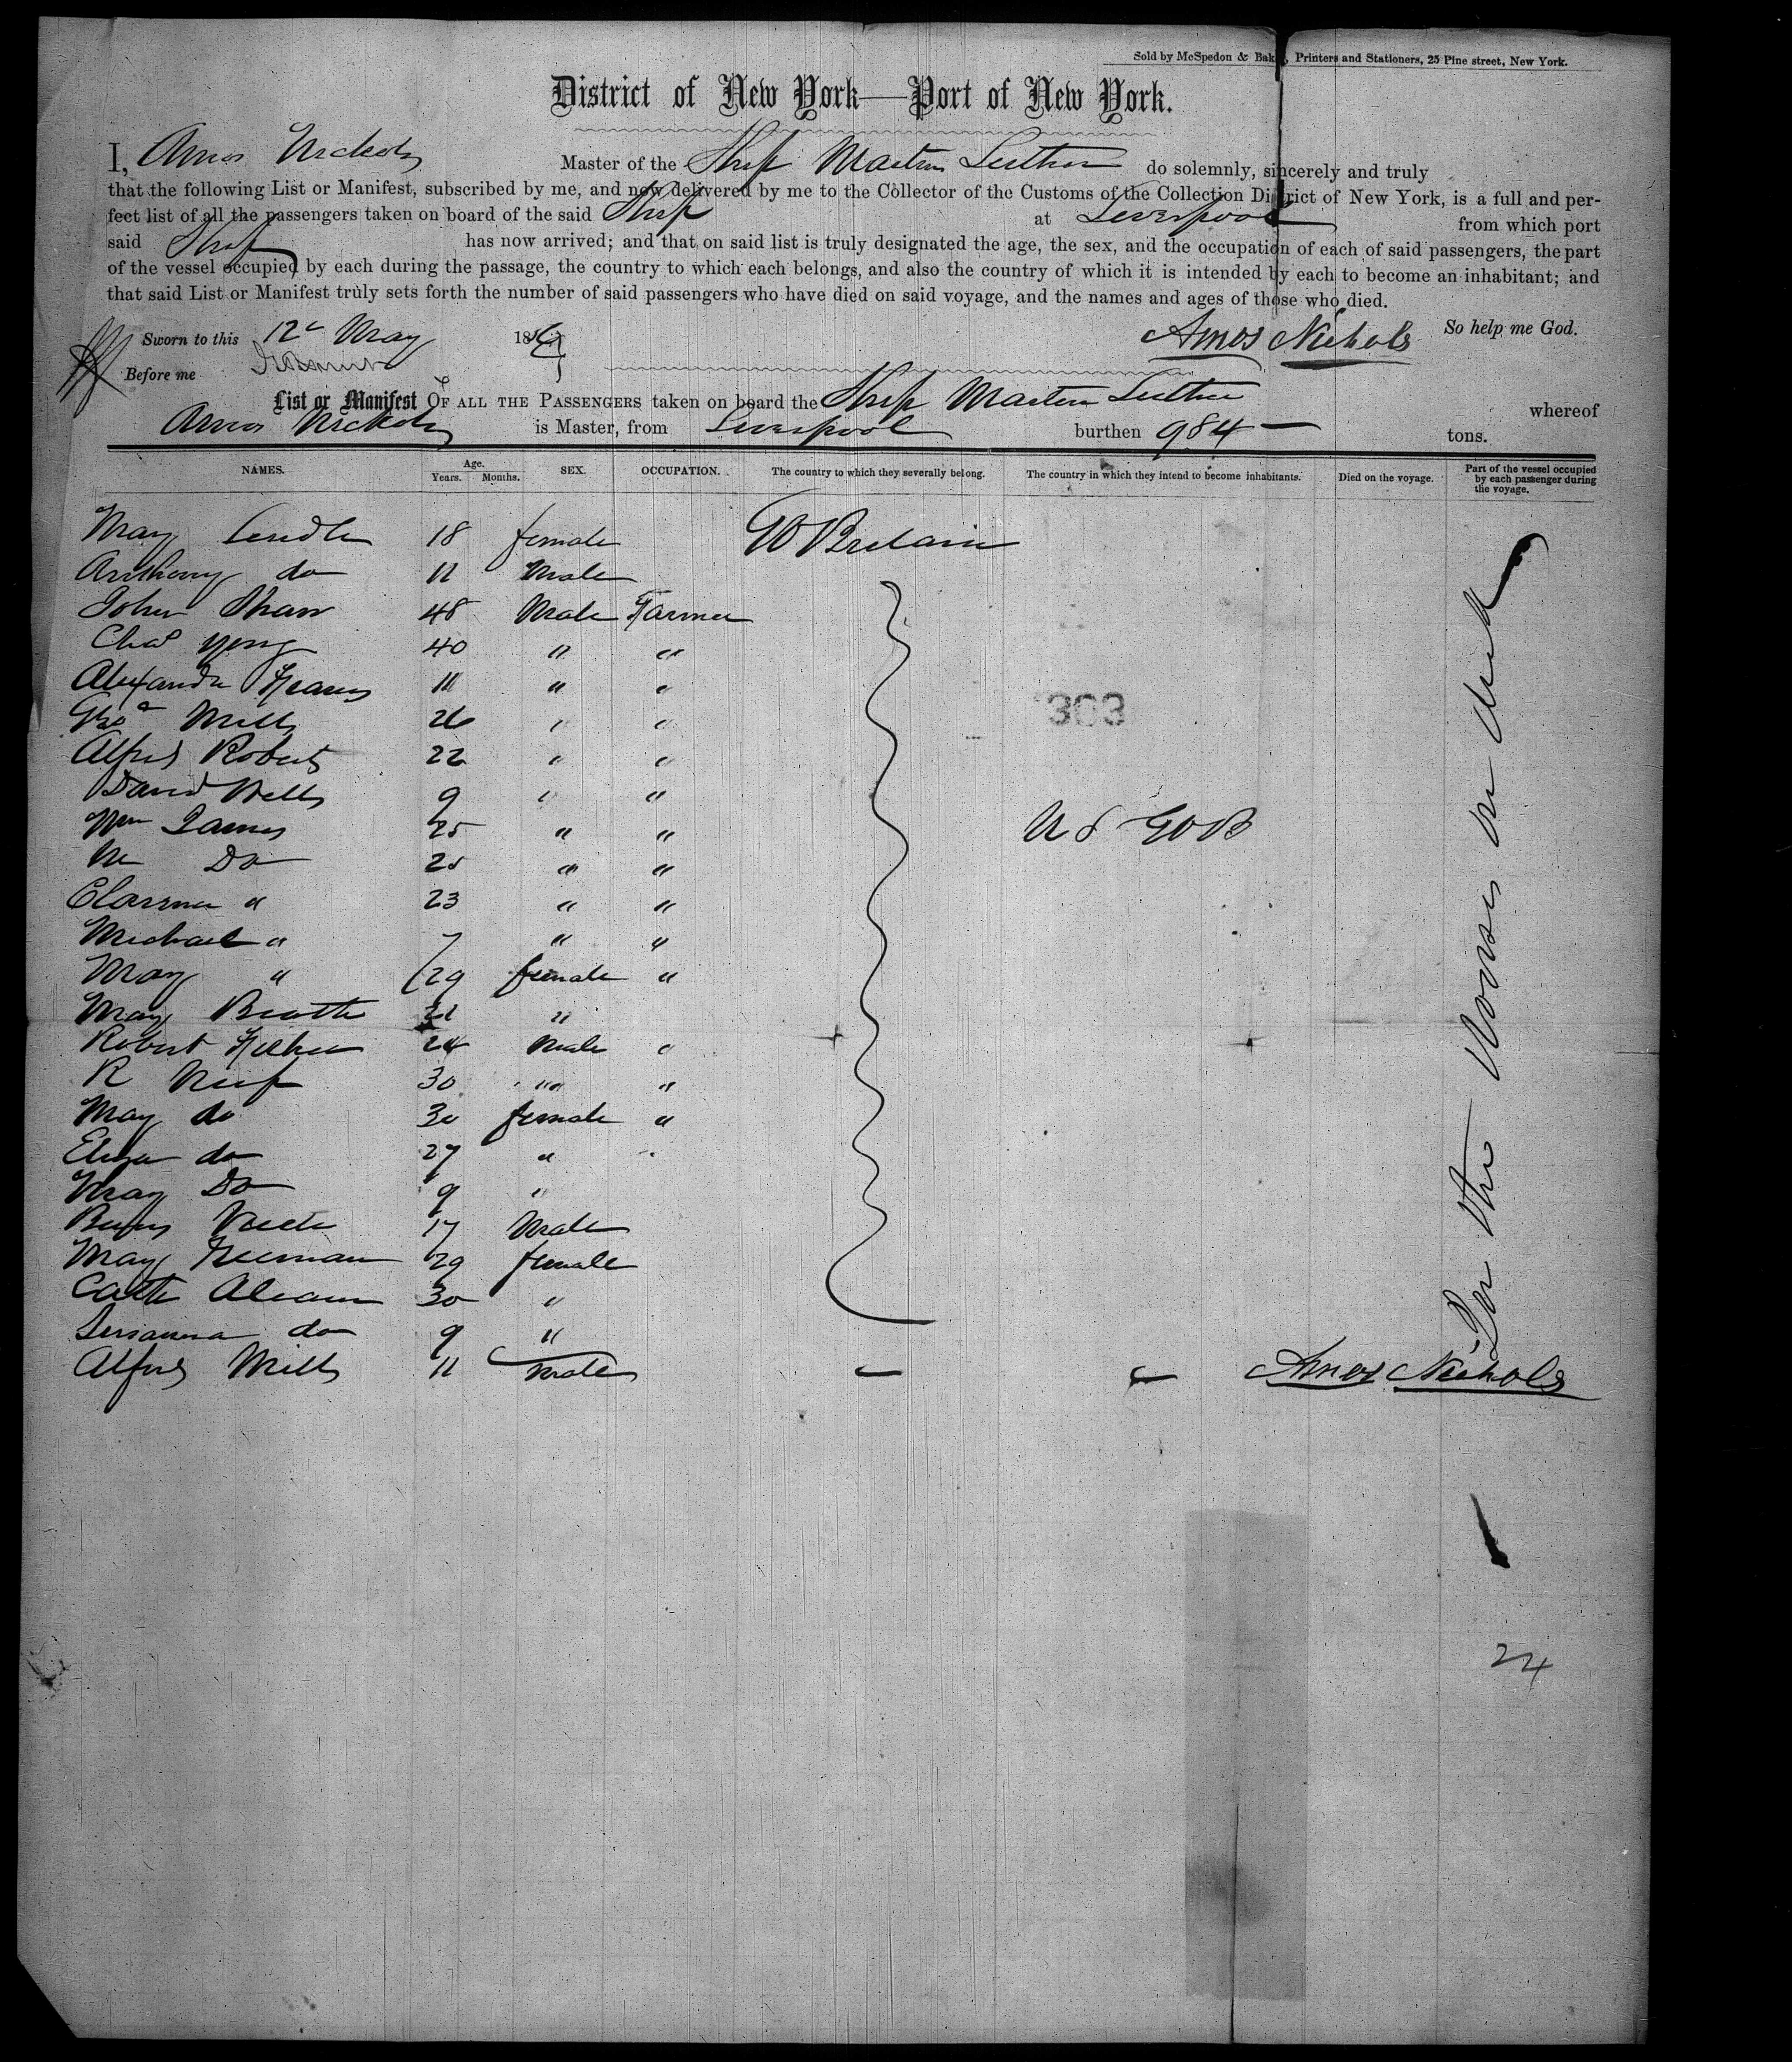 Sold by McSpedon & Bak , Printers and Stationers, 25 Pine street, New York.
District of New York—Port of New York.
I, Amos Nickols Master of the Ship Martin Luther do solemnly, sincerely and truly
that the following List or Manifest, subscribed by me, and now delivered by me to the Collector of the Customs of the Collection District of New York, is a full and per-
fect list of all the passengers taken on board of the said Ship at Liverpool from which port
said Ship has now arrived; and that on said list is truly designated the age, the sex, and the occupation of each of said passengers, the part
of the vessel occupied by each during the passage, the country to which each belongs, and also the country of which it is intended by each to become an inhabitant; and
that said List or Manifest truly sets forth the number of said passengers who have died on said voyage, and the names and ages of those who died.
Sworn to this 12 May 18 Amos Nichols So help me God.
Before me
List or Manifest OF ALL THE PASSENGERS taken on board the Ship Martin Luther whereof
Amos Nickols is Master, from Liverpool burthen 984 tons.
NAMES. Age. Years. Months. SEX. OCCUPATION. The country to which they severally belong. The country in which they intend to become inhabitants. Died on the voyage. Part of the vessel occupied by each passenger during the voyage.
Mary 18 female Gt Britain
Anthony do 11 Male
John Shaw 48 Male Farmer
Chas Yong 40 " "
Alexander 11 " "
Geo Mills 26 " "
363
Alfred Roberts 22 " "
David Wells 9 " "
Wm James 25 " " U S
M Do 25 " "
" 23 " "
Michael " 7 " "
May " 29 female "
May 32 "
Robert 24 Male "
R 30 " "
May do 30 female "
Eliza do 27 "
May Do 9 "
17 Male
May Freeman 29 female
Cath 30 "
Susanna do 9 "
Alfred Mills 11 male — — Amos Nichols
24